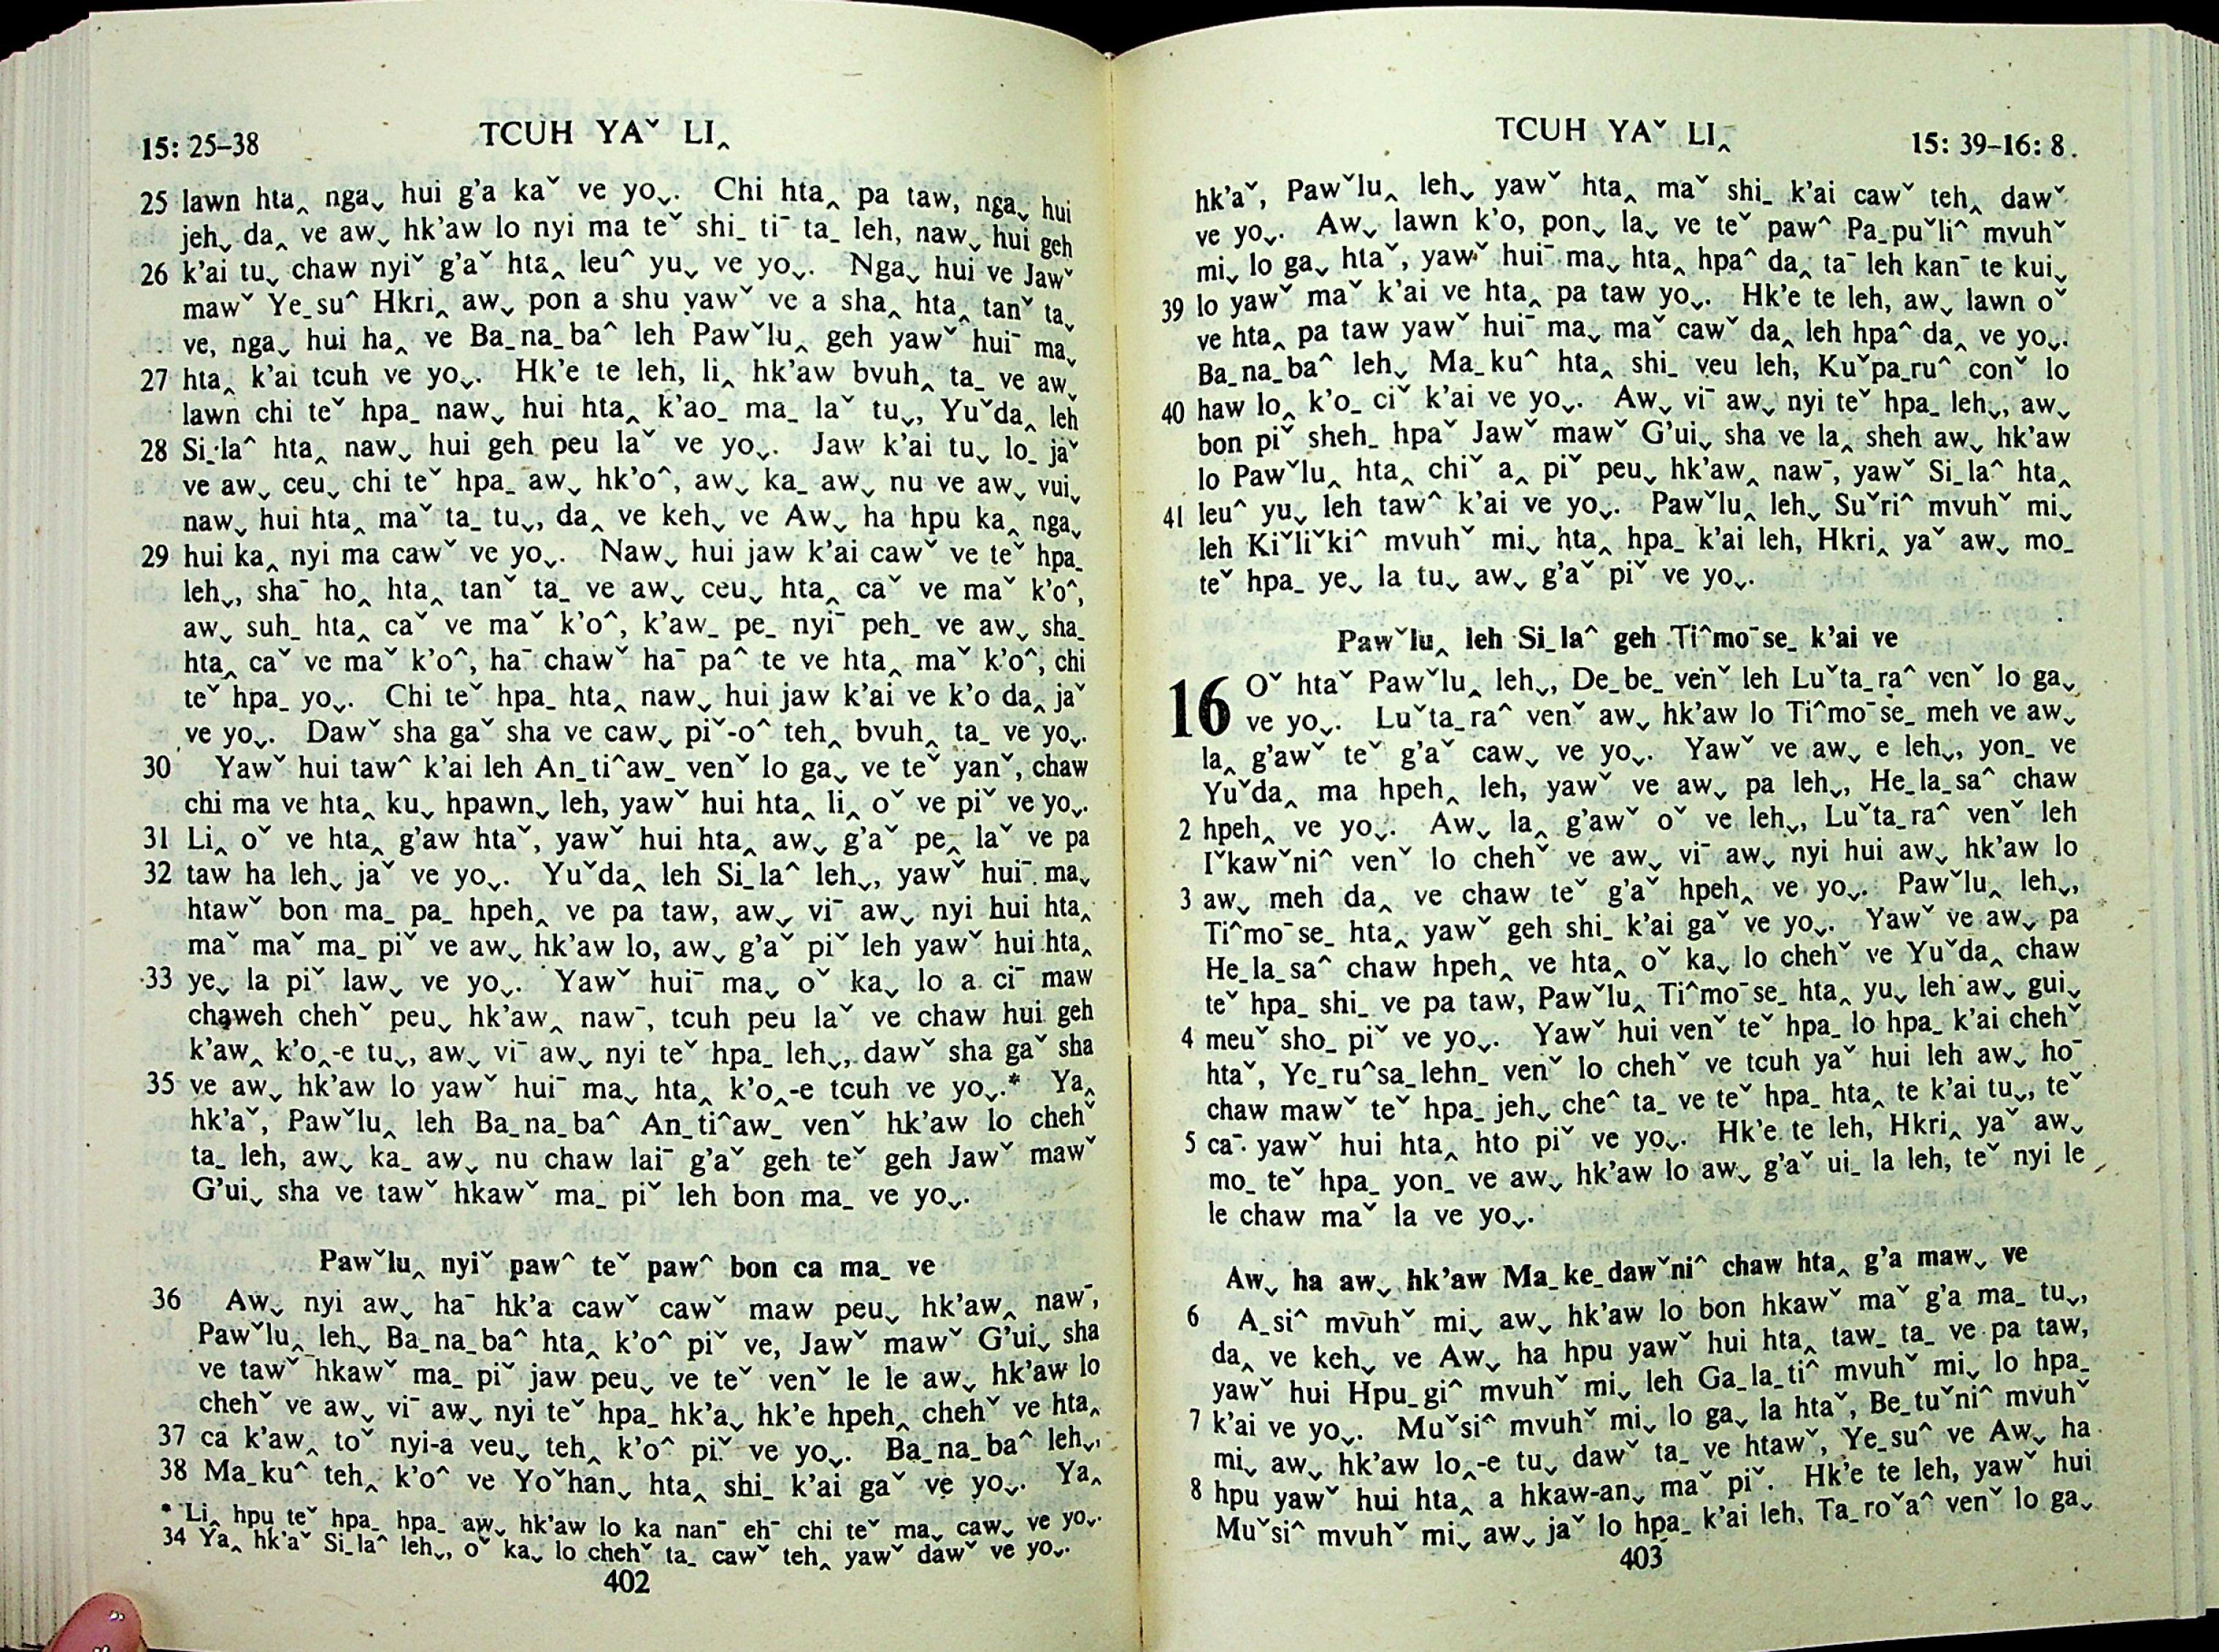 15: 25–38
TCUH YAˇ LI‸
25 lawn hta‸ ngaˬ hui g'a kaˇ ve yoˬ. Chi hta‸ pa taw, ngaˬ hui
jehˬ da‸ ve awˬ hk'aw lo nyi ma teˇ shi_ tiˉ ta_ leh, nawˬ hui geh
26 k'ai tuˬ chaw nyiˇ g'aˇ hta‸ leu^ yuˬ ve yoˬ. Ngaˬ hui ve Jawˇ
mawˇ Ye_su^ Hkri‸ awˬ pon a shu yawˇ ve a sha‸ hta‸ tanˇ taˬ
ve, ngaˬ hui ha‸ ve Ba_na_ba^ leh Pawˇlu‸ geh yawˇ huiˉ maˬ
27 hta‸ k'ai tcuh ve yoˬ. Hk'e te leh, li‸ hk'aw bvuh‸ ta_ ve awˬ
lawn chi teˇ hpa_ nawˬ hui hta‸ k'ao_ ma_ laˇ tuˬ, Yuˇda‸ leh
28 Si_la^ hta‸ nawˬ hui geh peu laˇ ve yoˬ. Jaw k'ai tuˬ lo_ jaˇ
ve awˬ ceuˬ chi teˇ hpa_ awˬ hk'o^, awˬ ka_ awˬ nu ve awˬ vuiˬ
nawˬ hui hta‸ maˇ ta_ tuˬ, da‸ ve kehˬ ve Awˬ ha hpu ka‸ ngaˬ
29 hui ka‸ nyi ma cawˇ ve yoˬ. Nawˬ hui jaw k'ai cawˇ ve teˇ hpa_
lehˬ, shaˉ ho‸ hta‸ tanˇ ta_ ve awˬ ceuˬ hta‸ caˇ ve maˇ k'o^,
awˬ suh_ hta‸ caˇ ve maˇ k'o^, k'aw_ pe_ nyiˉ peh_ ve awˬ sha_
hta‸ caˇ ve maˇ k'o^, haˉ chawˇ haˉ pa^ te ve hta‸ maˇ k'o^, chi
teˇ hpa_ yoˬ. Chi teˇ hpa_ hta‸ nawˬ hui jaw k'ai ve k'o da‸ jaˇ
ve yoˬ. Dawˇ sha gaˇ sha ve cawˬ piˇ-o^ teh‸ bvuh‸ ta_ ve yoˬ.
30 Yawˇ hui taw^ k'ai leh An_ti^aw_ venˇ lo gaˬ ve teˇ yanˇ, chaw
chi ma ve hta‸ kuˬ hpawnˬ leh, yawˇ hui hta‸ li‸ oˇ ve piˇ ve yoˬ.
31 Li‸ oˇ ve hta‸ g'aw htaˇ, yawˇ hui hta‸ awˬ g'aˇ pe‸ laˇ ve pa
32 taw ha lehˬ jaˇ ve yoˬ. Yuˇda‸ leh Si_la^ lehˬ, yawˇ huiˉ maˬ
htawˇ bon ma_ pa_ hpeh‸ ve pa taw, awˬ viˉ awˬ nyi hui hta‸
maˇ maˇ ma_ piˇ ve awˬ hk'aw lo, awˬ g'aˇ piˇ leh yawˇ hui hta‸
33 yeˬ la piˇ lawˬ ve yoˬ. Yawˇ huiˉ maˬ oˇ kaˬ lo a ciˉ maw
chaweh chehˇ peuˬ hk'aw‸ nawˉ, tcuh peu laˇ ve chaw hui geh
k'aw‸ k'o‸-e tuˬ, awˬ viˉ awˬ nyi teˇ hpa_ lehˬ, dawˇ sha gaˇ sha
35 ve awˬ hk'aw lo yawˇ huiˉ maˬ hta‸ k'o‸-e tcuh ve yoˬ.* Ya‸
hk'aˇ, Pawˇlu‸ leh Ba_na_ba^ An_ti^aw_ venˇ hk'aw lo chehˇ
ta_ leh, awˬ ka_ awˬ nu chaw laiˉ g'aˇ geh teˇ geh Jawˇ mawˇ
G'uiˬ sha ve tawˇ hkawˇ ma_ piˇ leh bon ma_ ve yoˬ.
Pawˇlu‸ nyiˇ paw^ teˇ paw^ bon ca ma_ ve
36 Awˬ nyi awˬ haˉ hk'a cawˇ cawˇ maw peuˬ hk'aw‸ nawˉ,
Pawˇlu‸ lehˬ Ba_na_ba^ hta‸ k'o^ piˇ ve, Jawˇ mawˇ G'uiˬ sha
ve tawˇ hkawˇ ma_ piˇ jaw peuˬ ve teˇ venˇ le le awˬ hk'aw lo
chehˇ ve awˬ viˉ awˬ nyi teˇ hpa_ hk'aˬ hk'e hpeh‸ chehˇ ve hta‸
37 ca k'aw‸ toˇ nyi-a veuˬ teh‸ k'o^ piˇ ve yoˬ. Ba_na_ba^ lehˬ,
38 Ma_ku^ teh‸ k'o^ ve Yoˇhanˬ hta‸ shi_ k'ai gaˇ ve yoˬ. Ya‸
* Li‸ hpu teˇ hpa_ hpa_ awˬ hk'aw lo ka nanˉ ehˉ chi teˇ maˬ cawˬ ve yoˬ.
34 Ya‸ hk'aˇ Si_la^ lehˬ, oˇ kaˬ lo chehˇ ta_ cawˇ teh‸ yawˇ dawˇ ve yoˬ.
402
TCUH YAˇ LI‸
15: 39–16: 8.
hk'aˇ, Pawˇlu‸ lehˬ yawˇ hta‸ maˇ shi_ k'ai cawˇ teh‸ dawˇ
ve yoˬ. Awˬ lawn k'o, ponˬ laˬ ve teˇ paw^ Pa_puˇli^ mvuhˇ
miˬ lo gaˬ htaˇ, yawˇ huiˉ maˬ hta‸ hpa^ da‸ taˉ leh kanˉ te kuiˬ
39 lo yawˇ maˇ k'ai ve hta‸ pa taw yoˬ. Hk'e te leh, awˬ lawn oˇ
ve hta‸ pa taw yawˇ huiˉ maˬ maˇ cawˇ da‸ leh hpa^ da‸ ve yoˬ.
Ba_na_ba^ lehˬ Ma_ku^ hta‸ shi_ veu leh, Kuˇpa_ru^ conˇ lo
40 haw lo‸ k'o_ ciˇ k'ai ve yoˬ. Awˬ viˉ awˬ nyi teˇ hpa_ lehˬ, awˬ
bon piˇ sheh_ hpaˇ Jawˇ mawˇ G'uiˬ sha ve la‸ sheh awˬ hk'aw
lo Pawˇlu‸ hta‸ chiˇ a‸ piˇ peuˬ hk'aw‸ nawˉ, yawˇ Si_la^ hta‸
41 leu^ yuˬ leh taw^ k'ai ve yoˬ. Pawˇlu‸ lehˬ Suˇri^ mvuhˇ miˬ
leh Kiˇliˇki^ mvuhˇ miˬ hta‸ hpa_ k'ai leh, Hkri‸ yaˇ awˬ mo_
teˇ hpa_ yeˬ la tuˬ awˬ g'aˇ piˇ ve yoˬ.
Pawˇlu‸ leh Si_la^ geh Ti^moˉse_ k'ai ve
16 Oˇ htaˇ Pawˇlu‸ lehˬ, De_be_ venˇ leh Luˇta_ra^ venˇ lo gaˬ
ve yoˬ. Luˇta_ra^ venˇ awˬ hk'aw lo Ti^moˉse_ meh ve awˬ
la‸ g'awˇ teˇ g'aˇ cawˬ ve yoˬ. Yawˇ ve awˬ e lehˬ, yon_ ve
Yuˇda‸ ma hpeh‸ leh, yawˇ ve awˬ pa lehˬ, He_la_sa^ chaw
2 hpeh‸ ve yoˬ. Awˬ la‸ g'awˇ oˇ ve lehˬ, Luˇta_ra^ venˇ leh
Iˇkawˇni^ venˇ lo chehˇ ve awˬ viˉ awˬ nyi hui awˬ hk'aw lo
3 awˬ meh da‸ ve chaw teˇ g'aˇ hpeh‸ ve yoˬ. Pawˇlu‸ lehˬ,
Ti^moˉse_ hta‸ yawˇ geh shi_ k'ai gaˇ ve yoˬ. Yawˇ ve awˬ pa
He_la_sa^ chaw hpeh‸ ve hta‸ oˇ kaˬ lo chehˇ ve Yuˇda‸ chaw
teˇ hpa_ shi_ ve pa taw, Pawˇlu‸ Ti^moˉse_ hta‸ yuˬ leh awˬ guiˬ
4 meuˇ sho_ piˇ ve yoˬ. Yawˇ hui venˇ teˇ hpa_ lo hpa_ k'ai chehˇ
htaˇ, Ye_ru^sa_lehn_ venˇ lo chehˇ ve tcuh yaˇ hui leh awˬ hoˉ
chaw mawˇ teˇ hpa_ jehˬ che^ ta_ ve teˇ hpa_ hta‸ te k'ai tuˬ, teˇ
5 caˉ yawˇ hui hta‸ hto piˇ ve yoˬ. Hk'e te leh, Hkri‸ yaˇ awˬ
mo_ teˇ hpa_ yon_ ve awˬ hk'aw lo awˬ g'aˇ ui_ la leh, teˇ nyi le
le chaw maˇ la ve yoˬ.
Awˬ ha awˬ hk'aw Ma_ke_dawˇni^ chaw hta‸ g'a mawˬ ve
6 A_si^ mvuhˇ miˬ awˬ hk'aw lo bon hkawˇ maˇ g'a ma_ tuˬ,
da‸ ve kehˬ ve Awˬ ha hpu yawˇ hui hta‸ taw_ ta_ ve pa taw,
yawˇ hui Hpu_gi^ mvuhˇ miˬ leh Ga_la_ti^ mvuhˇ miˬ lo hpa_
7 k'ai ve yoˬ. Muˇsi^ mvuhˇ miˬ lo gaˬ la htaˇ, Be_tuˇni^ mvuhˇ
miˬ awˬ hk'aw lo‸-e tuˬ dawˇ ta_ ve htawˇ, Ye_su^ ve Awˬ ha
8 hpu yawˇ hui hta‸ a hkaw-anˬ maˇ piˇ. Hk'e te leh, yawˇ hui
Muˇsi^ mvuhˇ miˬ awˬ jaˇ lo hpa_ k'ai leh, Ta_roˇa^ venˇ lo gaˬ
403